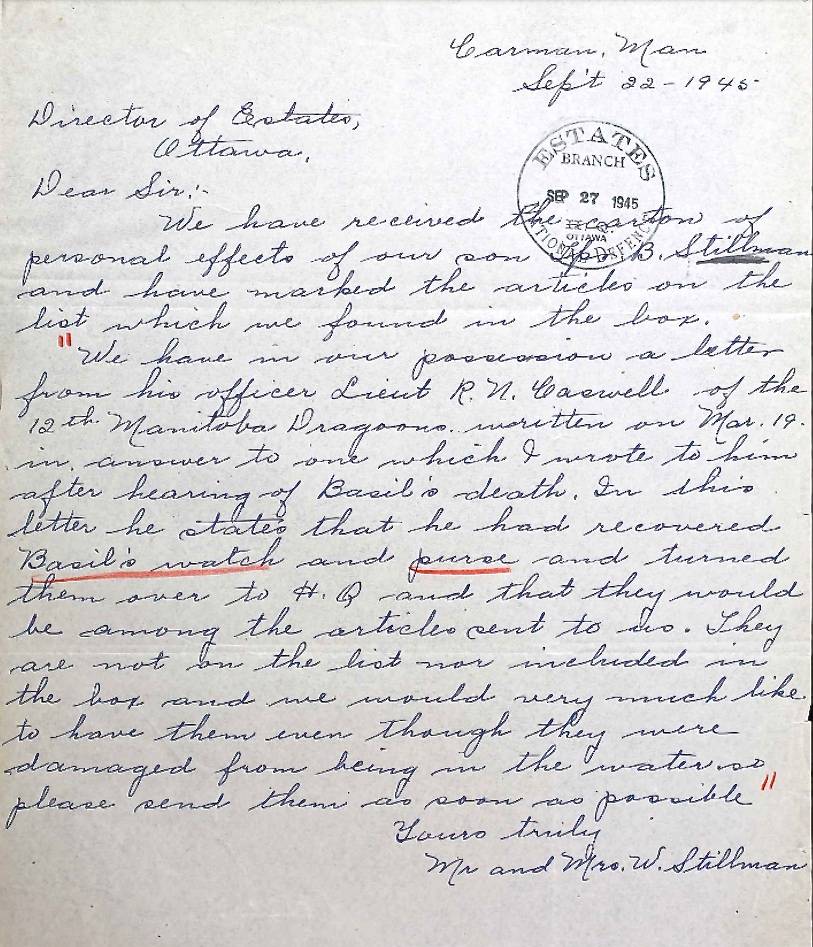 Carman, Man
Sep't 22-1945
Director of Estates,
Ottawa.
Dear Sir:-
ESTATES
BRANCH
SEP 27 1945
OTTAWA
NATIONAL DEFENCE
We have received the carton of
personal effects of our son B. Stillman
and have marked the articles on the
list which we found in the box.
"We have in our possession a letter
from his officer Lieut R. N. Caswell of the
12th Manitoba Dragoons. written on Mar. 19.
in answer to one which I wrote to him
after hearing of Basil's death. In this
letter he states that he had recovered
Basil's watch and purse and turned
them over to H. Q and that they would
be among the articles sent to us. They
are not on the list nor included in
the box and we would very much like
to have them even though they were
damaged from being in the water so
please send them as soon as possible"
Yours truly
Mr and Mrs. W. Stillman